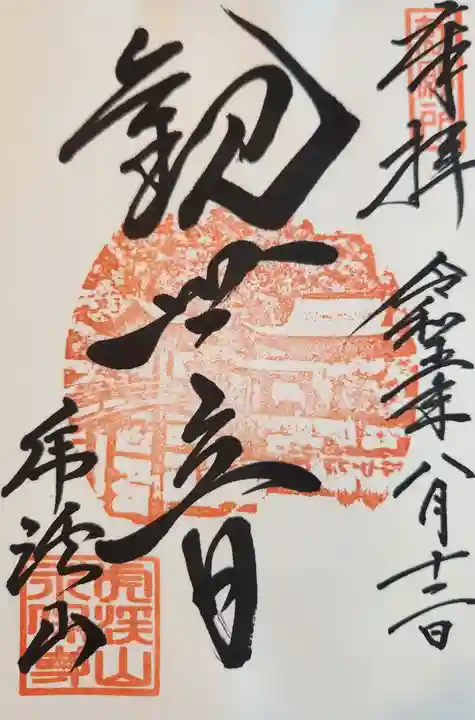 奉拝
令和五年八月十二日
観世音
虎渓山
虎渓山
永保寺